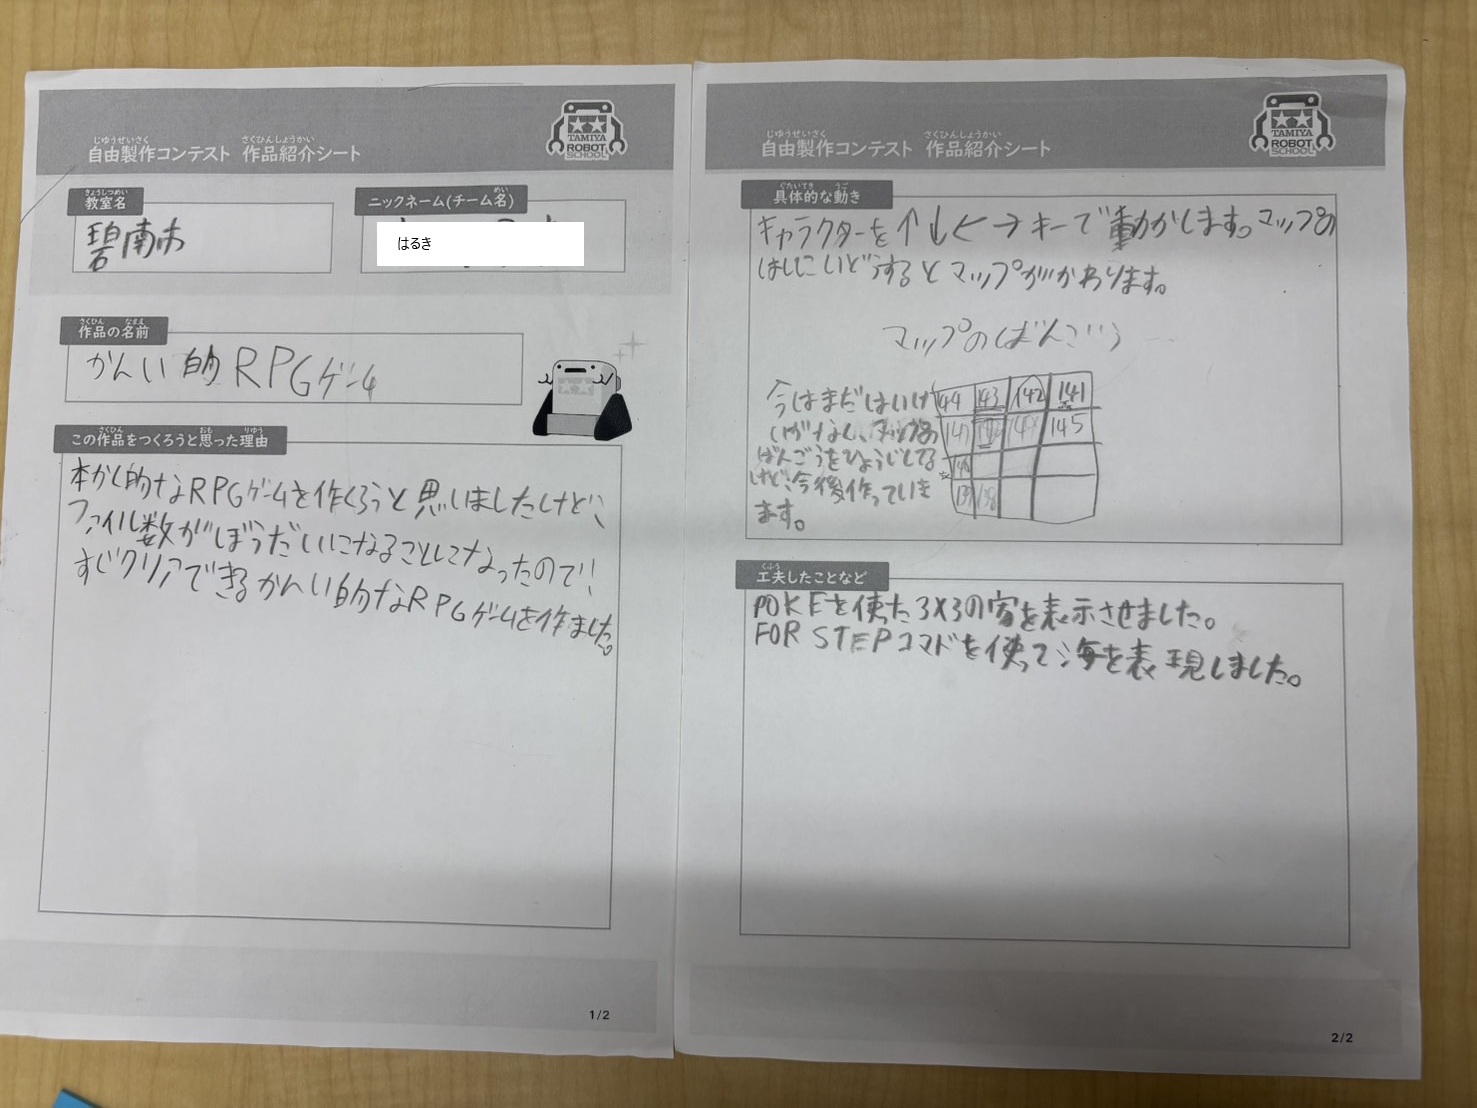 じゆうせいさく さくひんしょうかい
自由製作コンテスト 作品紹介シート
TAMIYA
ROBOT
SCHOOL
きょうしつめい
教室名
碧南市
めい
ニックネーム(チーム名)
はるき
さくひん なまえ
作品の名前
かんい的RPGゲーム
さくひん おも りゆう
この作品をつくろうと思った理由
本かく的なRPGゲームを作くろうと思いましたけど、
ファイル数がぼうだいになることになったので、
すぐクリアできるかんい的なRPGゲームを作ました。
1/2
じゆうせいさく さくひんしょうかい
自由製作コンテスト 作品紹介シート
TAMIYA
ROBOT
SCHOOL
ぐたいてき うご
具体的な動き
キャラクターを↑↓←→キーで動かします。マップの
はしにいどうするとマップがかわります。
マップのばんごう
今はまだはいけ
いがなく、マップの
ばんごうをひょうじしてる
けど、今後作っていき
ます。
144 143 142 141
147 145
139 138
くふう
工夫したことなど
POKEを使った3×3の家を表示させました。
FOR STEPコマドを使って海を表現しました。
2/2